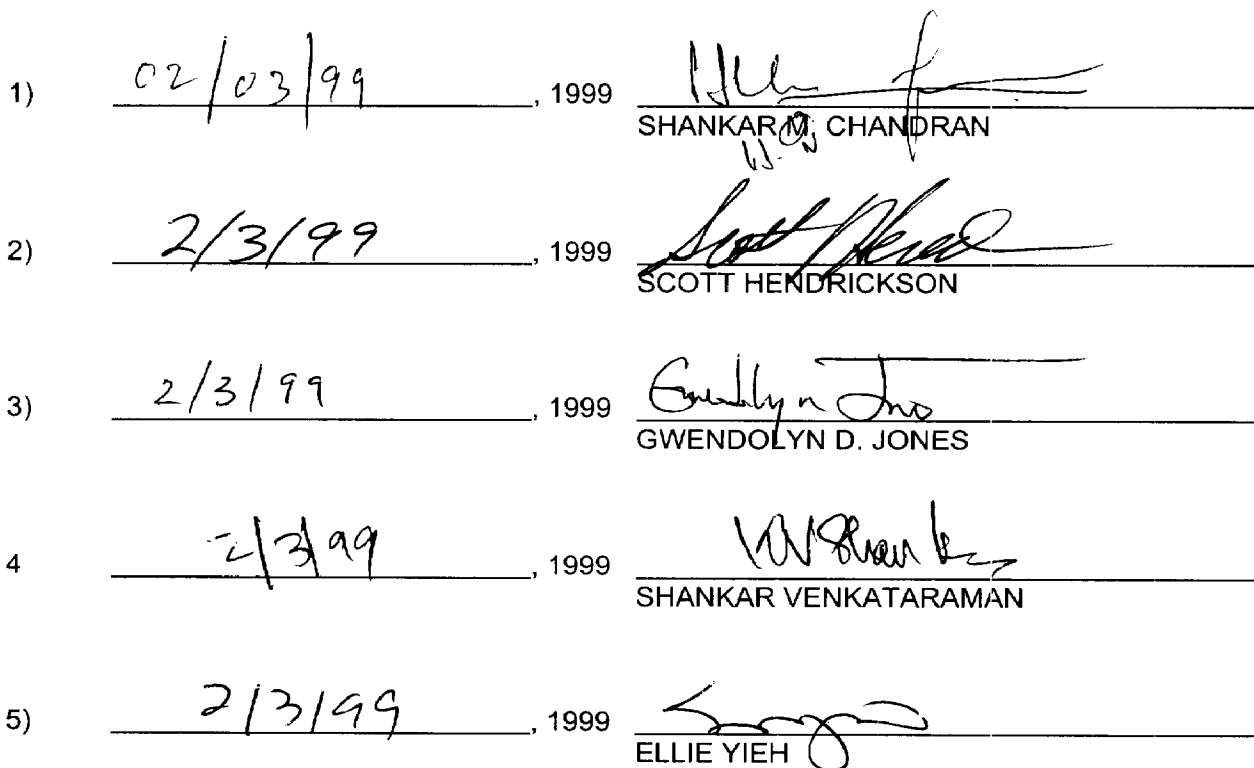 1) 02/03/99, 1999
SHANKAR M. CHANDRAN
2) 2/3/99, 1999 Scott
SCOTT HENDRICKSON
3) 2/3/99, 1999 Gwendolyn Jones
GWENDOLYN D. JONES
4 2/3/99, 1999
SHANKAR VENKATARAMAN
5) 2/3/99, 1999
ELLIE YIEH